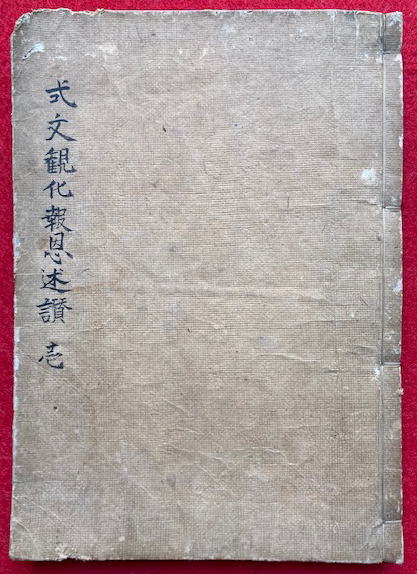 式文観化報恩述讃 壱